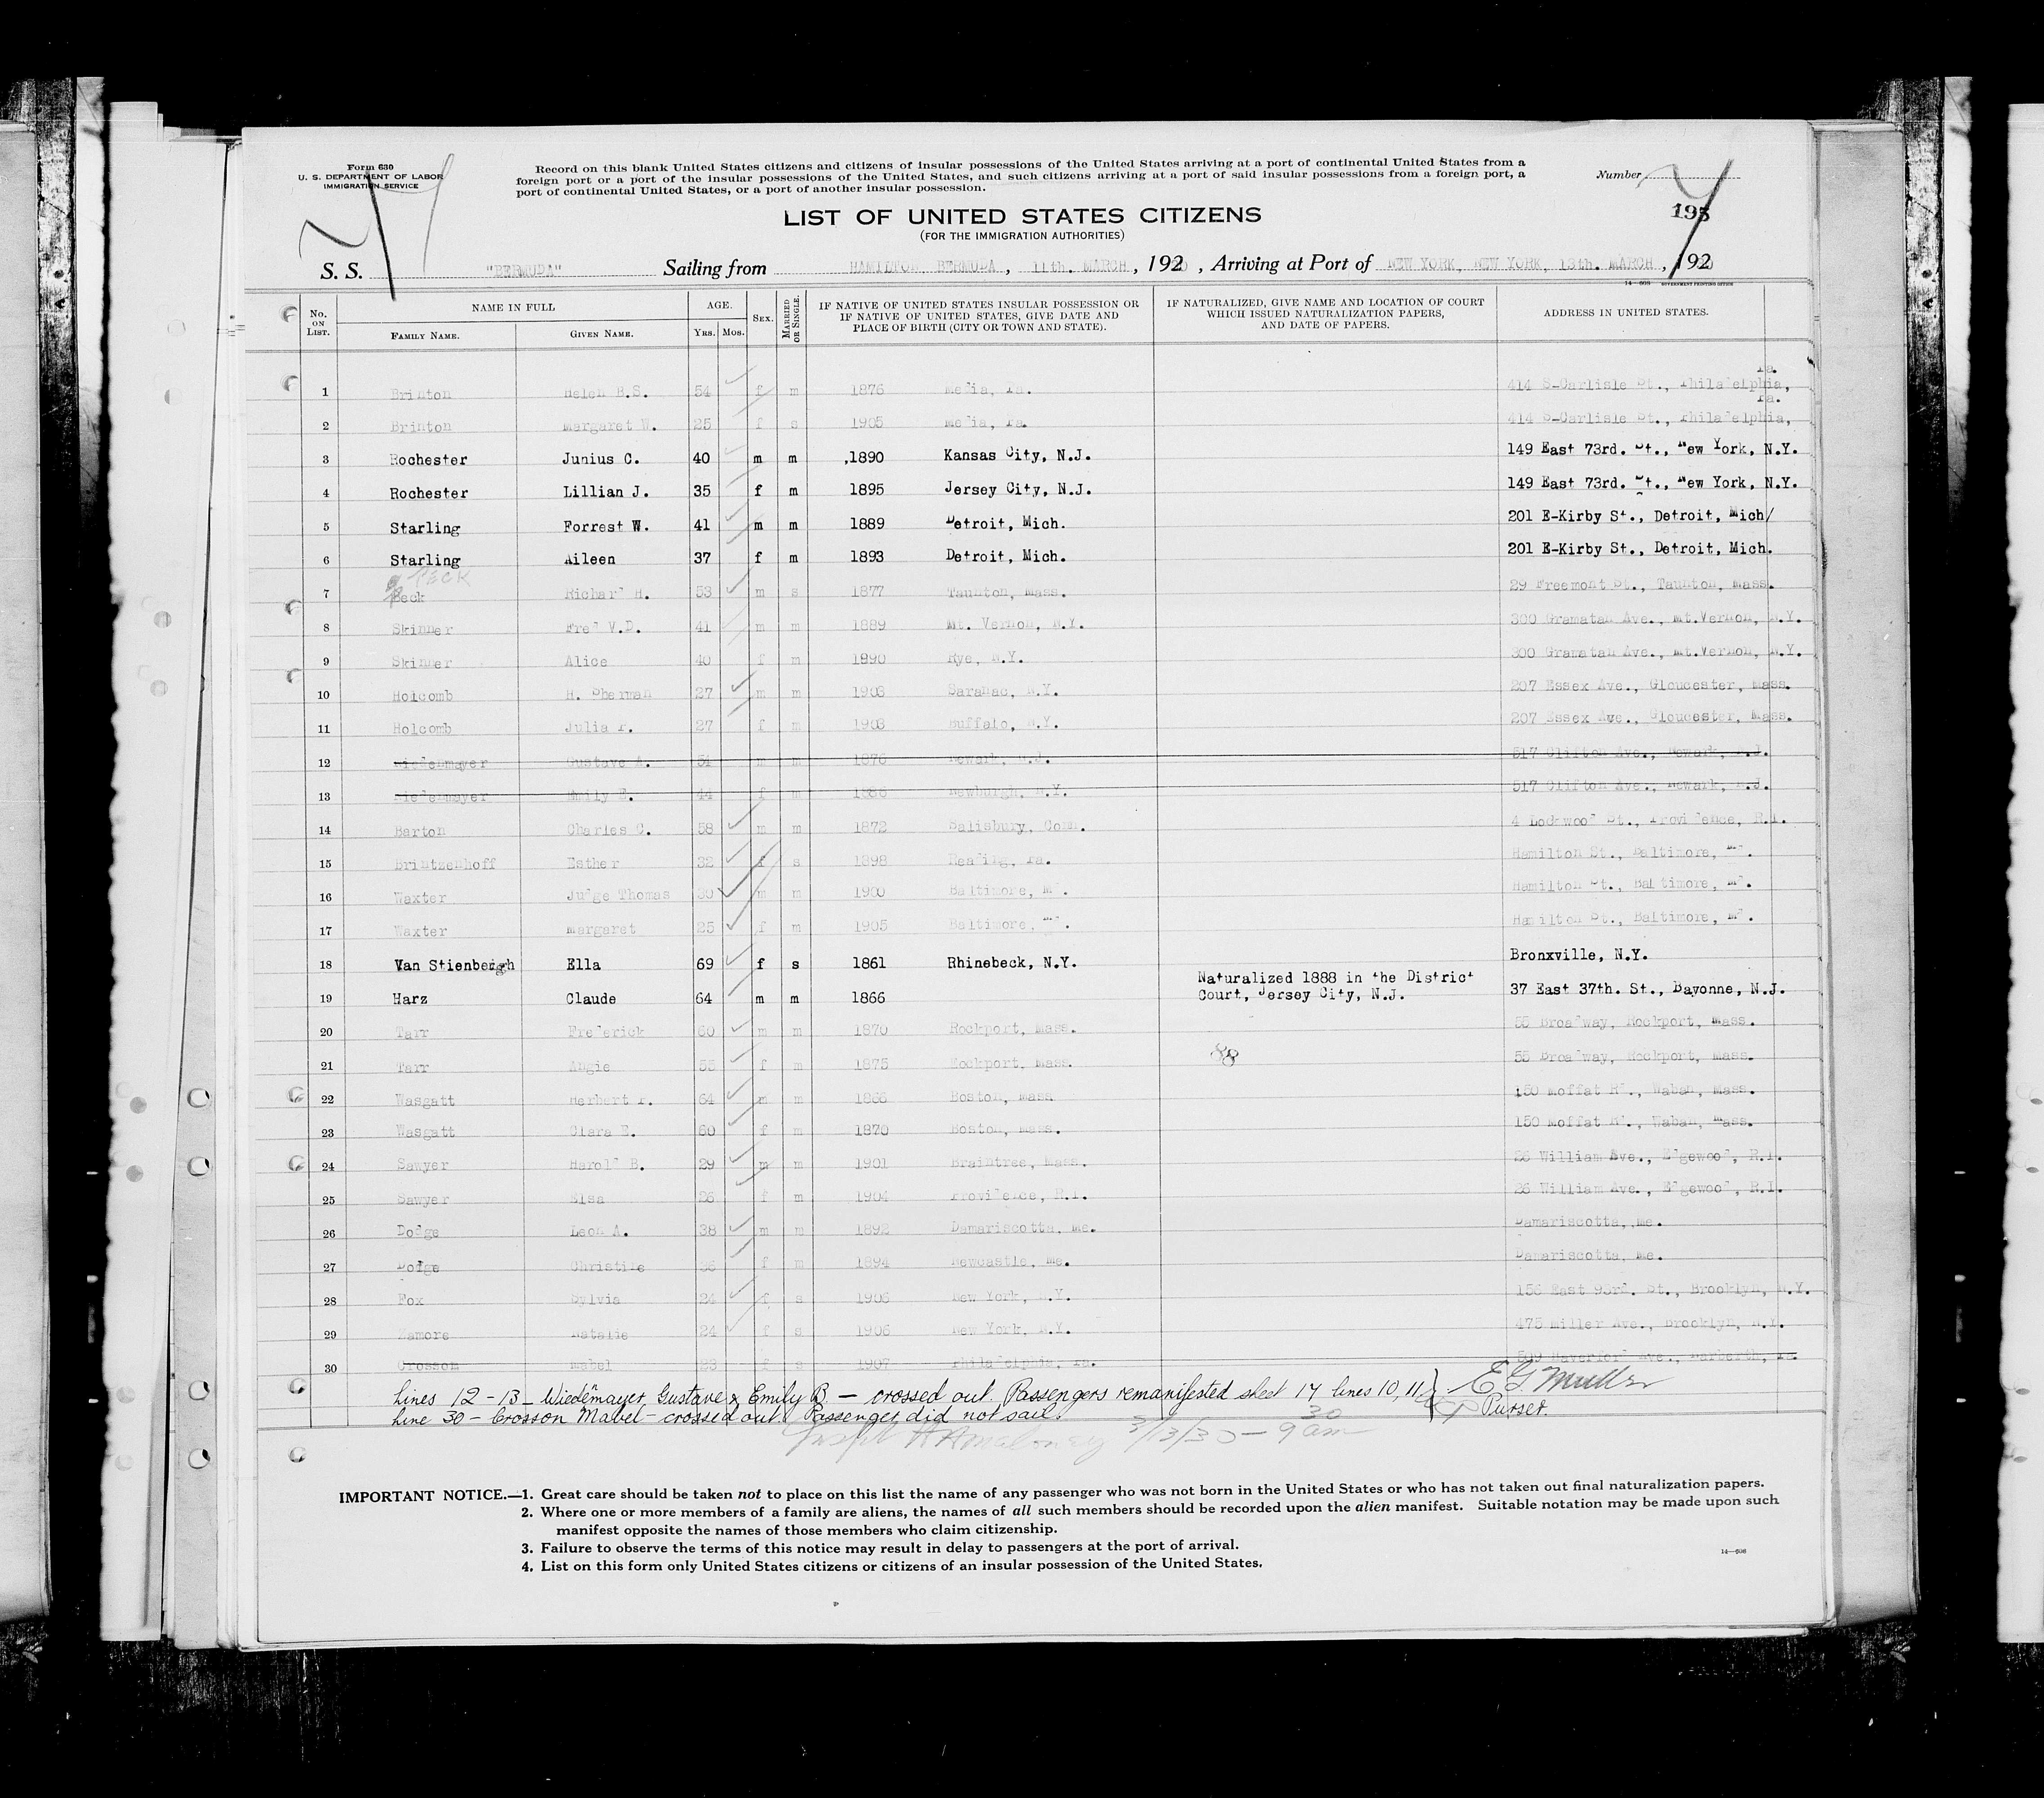 Form 630
U. S. DEPARTMENT OF LABOR
IMMIGRATION SERVICE
Record on this blank United States citizens and citizens of insular possessions of the United States arriving at a port of continental United States from a
foreign port or a port of the insular possessions of the United States, and such citizens arriving at a port of said insular possessions from a foreign port, a
port of continental United States, or a port of another insular possession.
Number
195
LIST OF UNITED STATES CITIZENS
(FOR THE IMMIGRATION AUTHORITIES)
S. S. "BERMUDA" Sailing from HAMILTON BERMUDA, 11th. MARCH, 1920, Arriving at Port of NEW YORK, NEW YORK, 13th. MARCH, 1920
14—608 GOVERNMENT PRINTING OFFICE
No. ON LIST. NAME IN FULL FAMILY NAME. GIVEN NAME. AGE. YRS. MOS. SEX. MARRIED OR SINGLE. IF NATIVE OF UNITED STATES INSULAR POSSESSION OR IF NATIVE OF UNITED STATES, GIVE DATE AND PLACE OF BIRTH (CITY OR TOWN AND STATE). IF NATURALIZED, GIVE NAME AND LOCATION OF COURT WHICH ISSUED NATURALIZATION PAPERS, AND DATE OF PAPERS. ADDRESS IN UNITED STATES.
1 Brinton Helen B.S. 54 f m 1876 Media, Pa. 414 S-Carlisle St., Philadelphia, Pa.
2 Brinton Margaret W. 25 f s 1905 Media, Pa. 414 S-Carlisle St., Philadelphia, Pa.
3 Rochester Junius C. 40 m m ,1890 Kansas City, N.J. 149 East 73rd. St., New York, N.Y.
4 Rochester Lillian J. 35 f m 1895 Jersey City, N.J. 149 East 73rd. St., New York, N.Y.
5 Starling Forrest W. 41 m m 1889 Detroit, Mich. 201 E-Kirby St., Detroit, Mich/
6 Starling Aileen 37 f m 1893 Detroit, Mich. 201 E-Kirby St., Detroit, Mich.
PECK
7 Beck Richard H. 53 m s 1877 Taunton, Mass. 29 Freemont St., Taunton, Mass.
8 Skinner Fred V.D. 41 m m 1889 Mt. Vernon, N.Y. 300 Gramatan Ave., Mt.Vernon, N.Y.
9 Skinner Alice 40 f m 1890 Rye, N.Y. 300 Gramatan Ave., Mt.Vernon, N.Y.
10 Holcomb H. Sherman 27 m m 1903 Saranac, N.Y. 207 Essex Ave., Gloucester, Mass.
11 Holcomb Julia F. 27 f m 1903 Buffalo, N.Y. 207 Essex Ave., Gloucester, Mass.
12 Wiedenmayer Gustave A. 51 m m 1876 Newark, N.J. 517 Clifton Ave., Newark, N.J.
13 Wiedenmayer Emily E. 44 f m 1886 Newburgh, N.Y. 517 Clifton Ave., Newark, N.J.
14 Barton Charles C. 58 m m 1872 Salisbury, Conn. 4 Lockwood St., Providence, R.I.
15 Brintzenhoff Esther 32 f s 1898 Reading, Pa. Hamilton St., Baltimore, Md.
16 Waxter Judge Thomas 30 m m 1900 Baltimore, Md. Hamilton St., Baltimore, Md.
17 Waxter Margaret 25 f m 1905 Baltimore, Md. Hamilton St., Baltimore, Md.
18 Van Stienbergh Ella 69 f s 1861 Rhinebeck, N.Y. Bronxville, N.Y.
19 Harz Claude 64 m m 1866 Naturalized 1888 in the District Court, Jersey City, N.J. 37 East 37th. St., Bayonne, N.J.
20 Tarr Frederick 60 m m 1870 Rockport, Mass. 55 Broadway, Rockport, Mass.
21 Tarr Angie 55 f m 1875 Rockport, Mass. 88 55 Broadway, Rockport, Mass.
22 Wasgatt Herbert P. 64 m m 1866 Boston, Mass 150 Moffat Rd., Waban, Mass.
23 Wasgatt Clara E. 60 f m 1870 Boston, Mass. 150 Moffat Rd., Waban, Mass.
24 Sawyer Harold B. 29 m m 1901 Braintree, Mass. 26 William Ave., Edgewood, R.I.
25 Sawyer Elsa 26 f m 1904 Providence, R.I. 26 William Ave., Edgewood, R.I.
26 Dodge Leon A. 38 m m 1892 Damariscotta, Me. Damariscotta, Me.
27 Dodge Christine 36 f m 1894 Newcastle, Me. Damariscotta, Me.
28 Fox Sylvia 24 f s 1906 New York, N.Y. 156 East 93rd. St., Brooklyn, N.Y.
29 Zamore Natalie 24 f s 1906 New York, N.Y. 475 Miller Ave., Brooklyn, N.Y.
30 Crosson Mabel 23 f s 1907 Philadelphia, Pa. 509 Haverford Ave., Narberth, Pa.
Lines 12 - 13 - Wiedenmayer, Gustave & Emily B. - crossed out. Passengers remanifested sheet 17 lines 10, 11 E G Muller
Line 30 - Crosson Mabel - crossed out. Passenger did not sail. Purser.
Joseph A Maloney 3/13/30 - 9 30 am
IMPORTANT NOTICE.—1. Great care should be taken not to place on this list the name of any passenger who was not born in the United States or who has not taken out final naturalization papers.
2. Where one or more members of a family are aliens, the names of all such members should be recorded upon the alien manifest. Suitable notation may be made upon such
manifest opposite the names of those members who claim citizenship.
3. Failure to observe the terms of this notice may result in delay to passengers at the port of arrival.
4. List on this form only United States citizens or citizens of an insular possession of the United States.
14—608